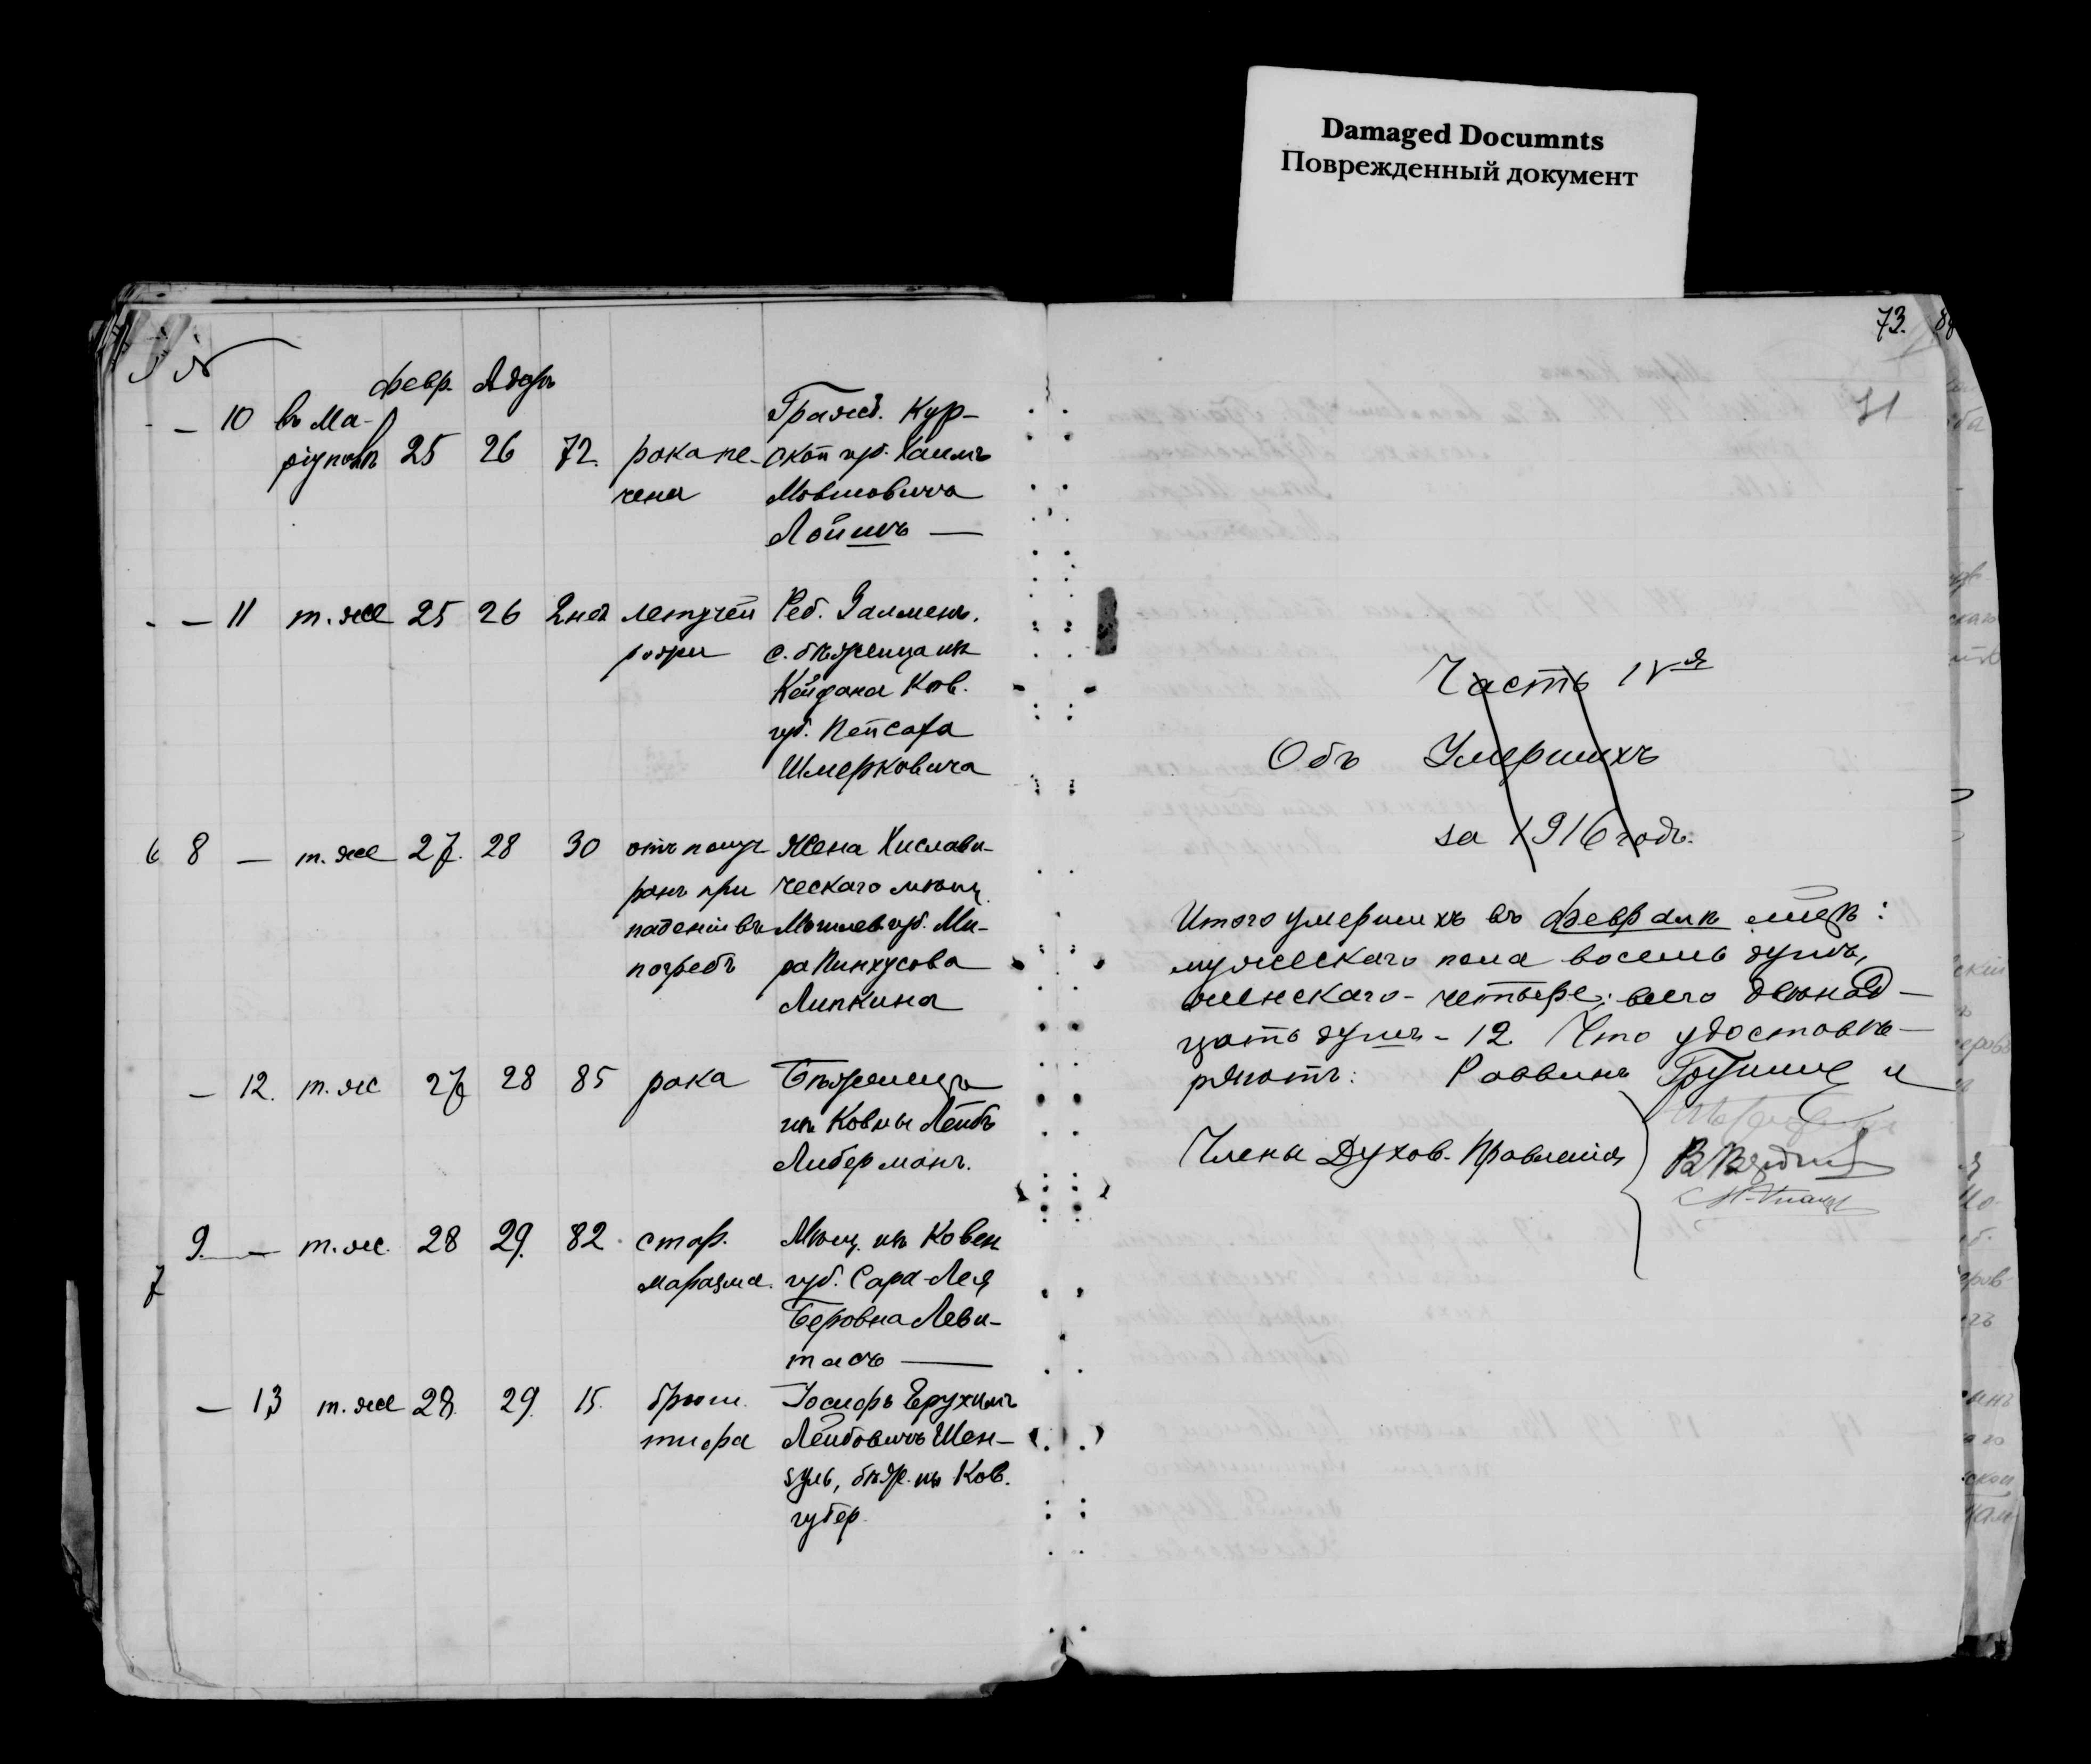 Damaged Documnts
Поврежденный документ
73.
71
февр. Адаръ
— 10 въ Ма-
ріуполѣ 25 26 72. рака пе-
чени
Гражд. Кур-
ской губ. Хаимъ
Мовшовичъ
— 11 т. же 25 26 2 нед
Реб. Залменъ,
с. бѣженца изъ
Кейдана Ков.
губ. Пейсаха
Шмерковича
6 8 — т. же 27. 28 30 отъ
ранъ при
паденіи въ
погребъ
Жена Хислави-
ческаго мѣщ.
Могилев. губ. Ми-
ра Пинхусова
Липкина
— 12. т. ж 27 28 85 рака
Бѣженецъ
изъ Ковны Лейбъ
Либерманъ.
7 9. — т. ж. 28 29. 82 стар.
маразма.
Мѣщ. изъ Ковен
губ. Сара-Лея
Беровна Леви-
тасъ —
— 13 т. же 28. 29. 15. брюш.
тифа
Іосифъ Ерухимъ
Лейбовичъ Шен-
зуль, бѣж. изъ Ков.
губер.
Часть IV-я
Объ Умершихъ
за 1916 годъ.
Итого умершихъ въ февралѣ мцѣ:
мужескаго пола восемь душъ,
женскаго - четыре; всего двѣнад-
цать душъ - 12. Что удостовѣ-
ряютъ: Раввинъ и
Члены Духов. Правленія